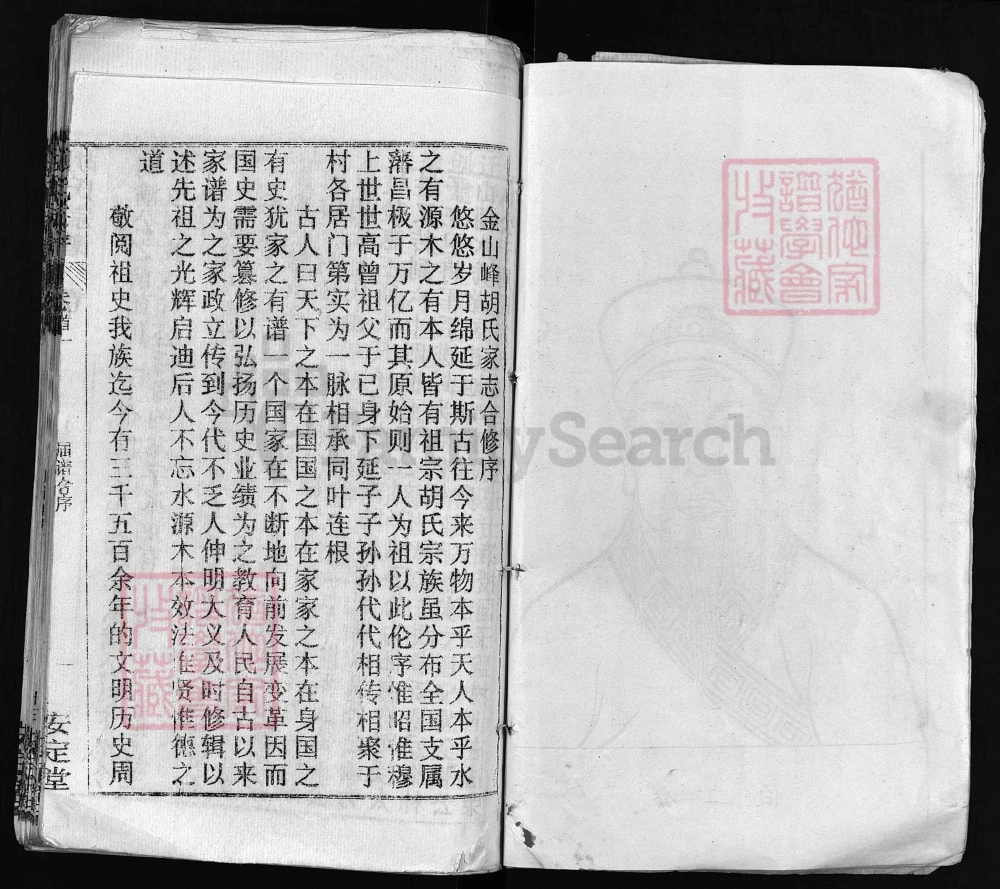 金山峰胡氏家志合修序
悠悠岁月绵延于斯古往今来万物本乎天人本乎水
之有源木之有本人皆有祖宗胡氏宗族虽分布全国支属
藩昌极于万亿而其原始则一人为祖以此伦序惟昭惟穆
上世世高曾祖父于已身下延子子孙孙代代相传相聚于
村各居门第实为一脉相承同叶连根
古人曰天下之本在国国之本在家家之本在身国之
有史犹家之有谱一个国家在不断地向前发展变革因而
国史需要篡修以弘扬历史业绩为之教育人民自古以来
家谱为之家政立传到今代不乏人伸明大义及时修辑以
述先祖之光辉启迪后人不忘水源木本效法惟贤惟德之
道
敬阅祖史我族迄今有三千五百余年的文明历史周
卷首
届谱合序
安定堂
猶他家
譜學會
收藏
猶他家
譜學會
收藏
FamilySearch